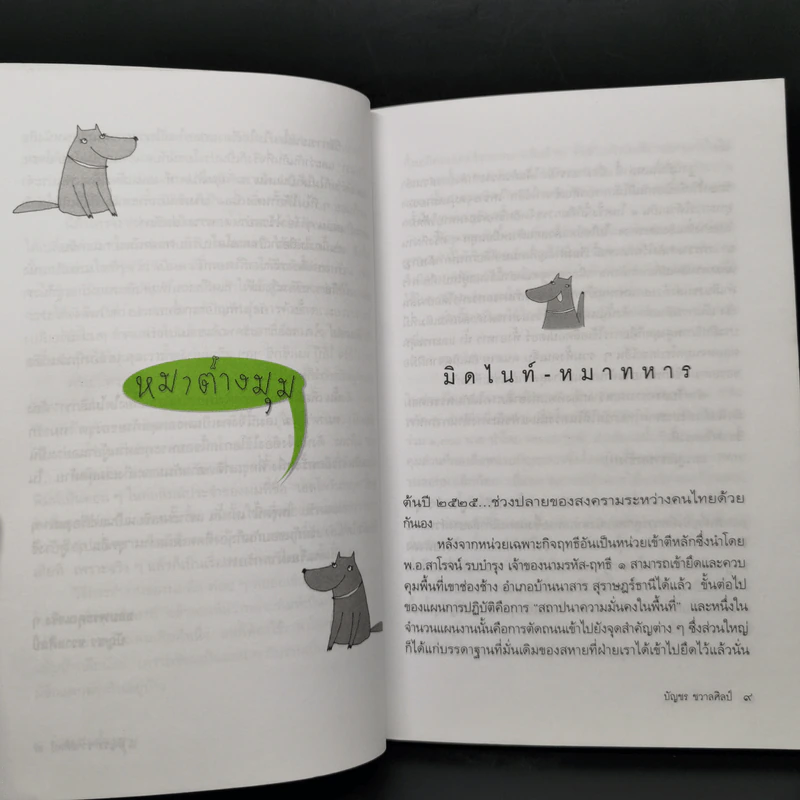 หมาต่างมุม
มิดไนท์-หมาทหาร
ต้นปี ๒๕๒๕...ช่วงปลายของสงครามระหว่างคนไทยด้วย
กันเอง
หลังจากหน่วยเฉพาะกิจฤทธีอันเป็นหน่วยเข้าตีหลักซึ่งนำโดย
พ.อ.สาโรจน์ รบบำรุง เจ้าของนามรหัส-ฤทธี ๑ สามารถเข้ายึดและควบ
คุมพื้นที่เขาช่องช้าง อำเภอบ้านนาสาร สุราษฎร์ธานีได้แล้ว ขั้นต่อไป
ของแผนการปฏิบัติคือการ "สถาปนาความมั่นคงในพื้นที่" และหนึ่งใน
จำนวนแผนงานนั้นคือการตัดถนนเข้าไปยังจุดสำคัญต่าง ๆ ซึ่งส่วนใหญ่
ก็ได้แก่บรรดาฐานที่มั่นเดิมของสหายที่ฝ่ายเราได้เข้าไปยึดไว้แล้วนั่น
บัญชร ชวาลศิลป์ ๙